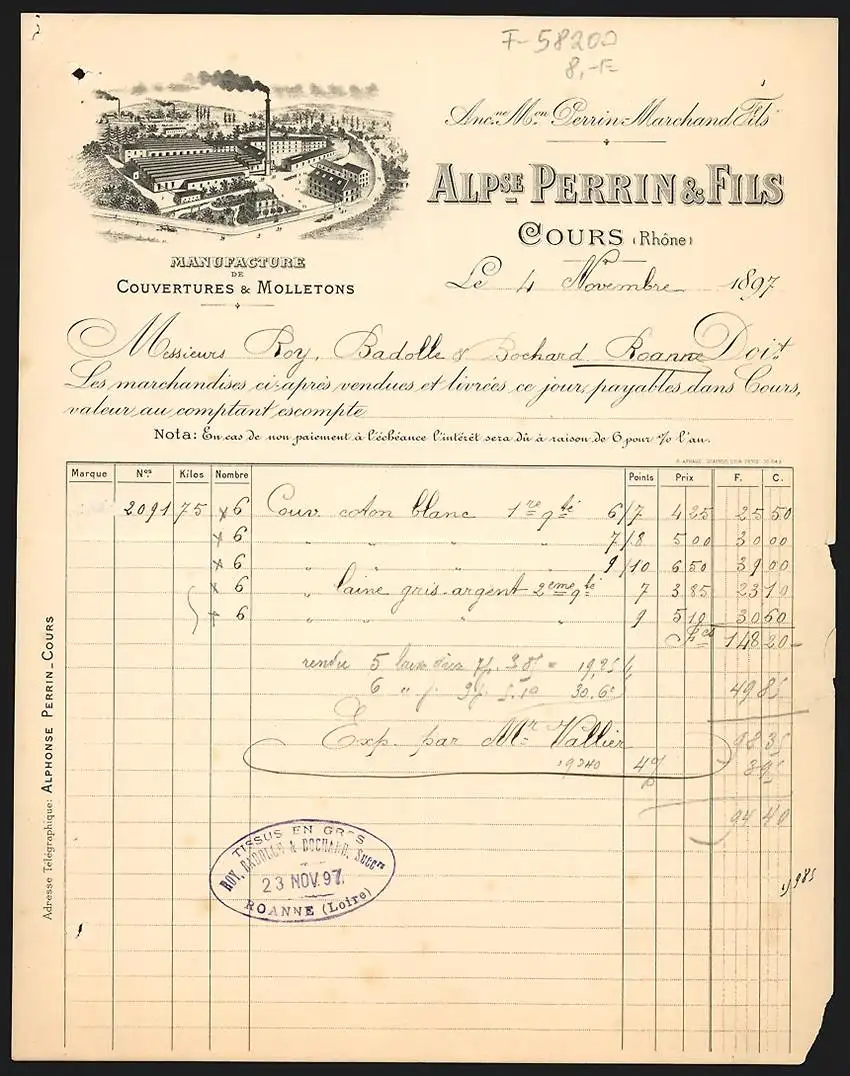 F-58200
8,-E
Anc.ne M.on Perrin-Marchand Fils
ALPSE PERRIN & FILS
COURS (Rhône)
MANUFACTURE
DE
COUVERTURES & MOLLETONS
Le 4 Novembre 1897
Messieurs Roy, Badolle & Bochard Roanne Doit
Les marchandises ci-après vendues et livrées ce jour, payables dans Cours,
valeur au comptant escompte
Nota: En cas de non paiement à l'échéance l'intérêt sera dû à raison de 6 pour % l'an.
Marque Nos Kilos Nombre Points Prix F. C.
2091 75 x 6 Couv. coton blanc 1re qté 6/7 4 25 25 50
x 6 " " " " 7/8 5 00 30 00
x 6 " " " " 9/10 6 50 39 00
x 6 " laine gris-argent 2eme qté 7 3 85 23 10
x 6 " " " " 9 5 10 30 60
Fcs 148 20
rendu 5 7p. 3.85 = 19,25
6 " 9p. 5.10 30.60
49 85
Exp. par Mr Vallier
98 35
4%
3 95
94 40
1985
TISSUS EN GROS
ROY, BADOLLE & BOCHARD, Succrs
23 NOV. 97
ROANNE (Loire)
Adresse Télégraphique: ALPHONSE PERRIN_COURS